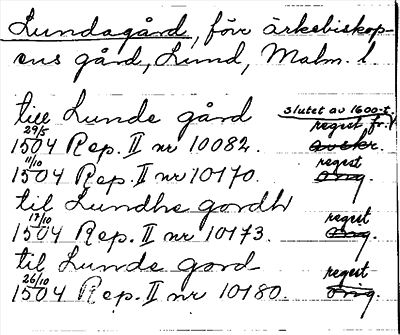 Lundagård, förr ärkebiskop-
ens gård, Lund, Malm. l.
till Lunde gård slutet av 1600-t.
29/5 regest fr.
1504 Rep. II nr 10082. avskr.
11/10 regest
1504 Rep. II nr 10170. orig.
til Lundhe gordh
17/10 regest
1504 Rep. II nr 10173. orig.
til Lunde gord
26/10 regest
1504 Rep. II nr 10180. orig.